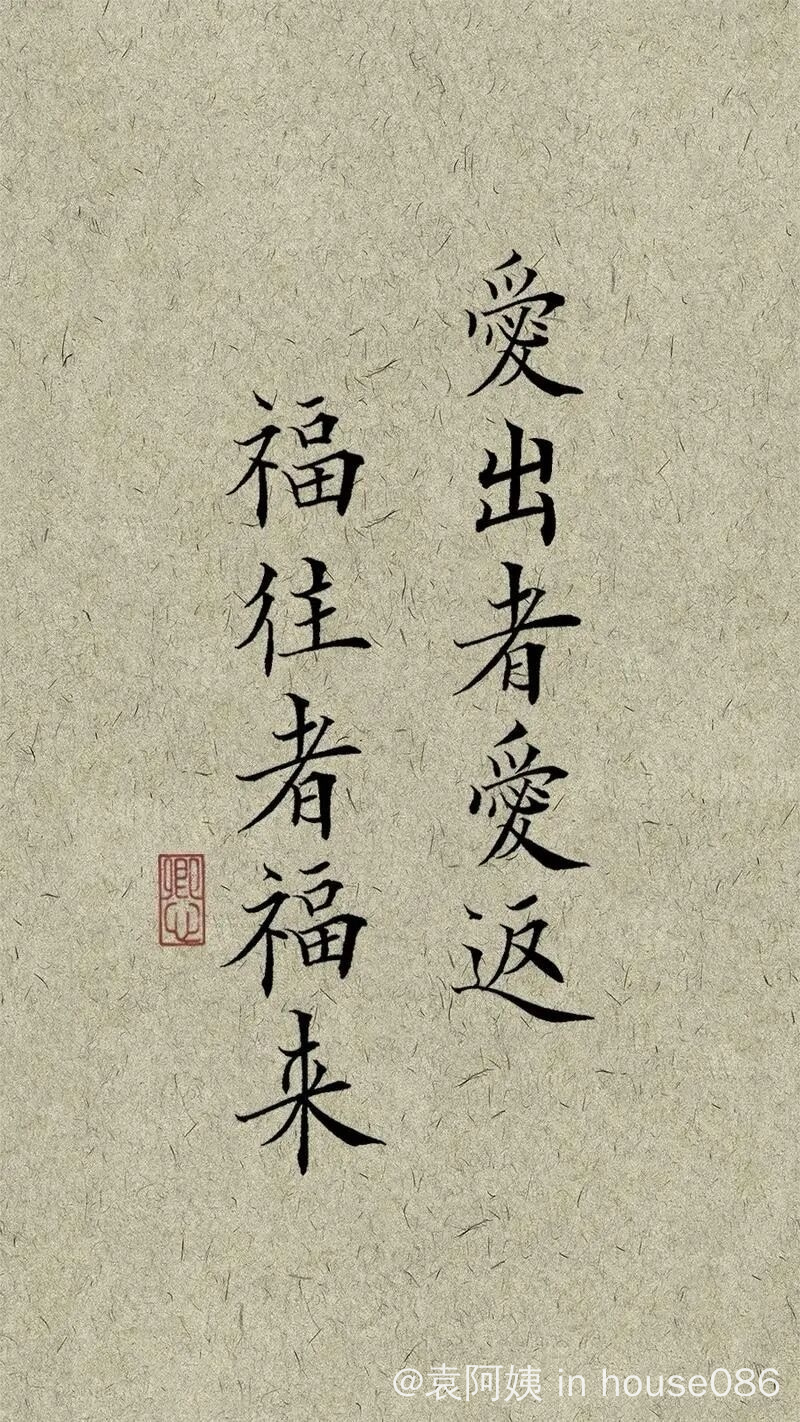 愛出者愛返
福往者福来
卿心
@袁阿姨 in house086